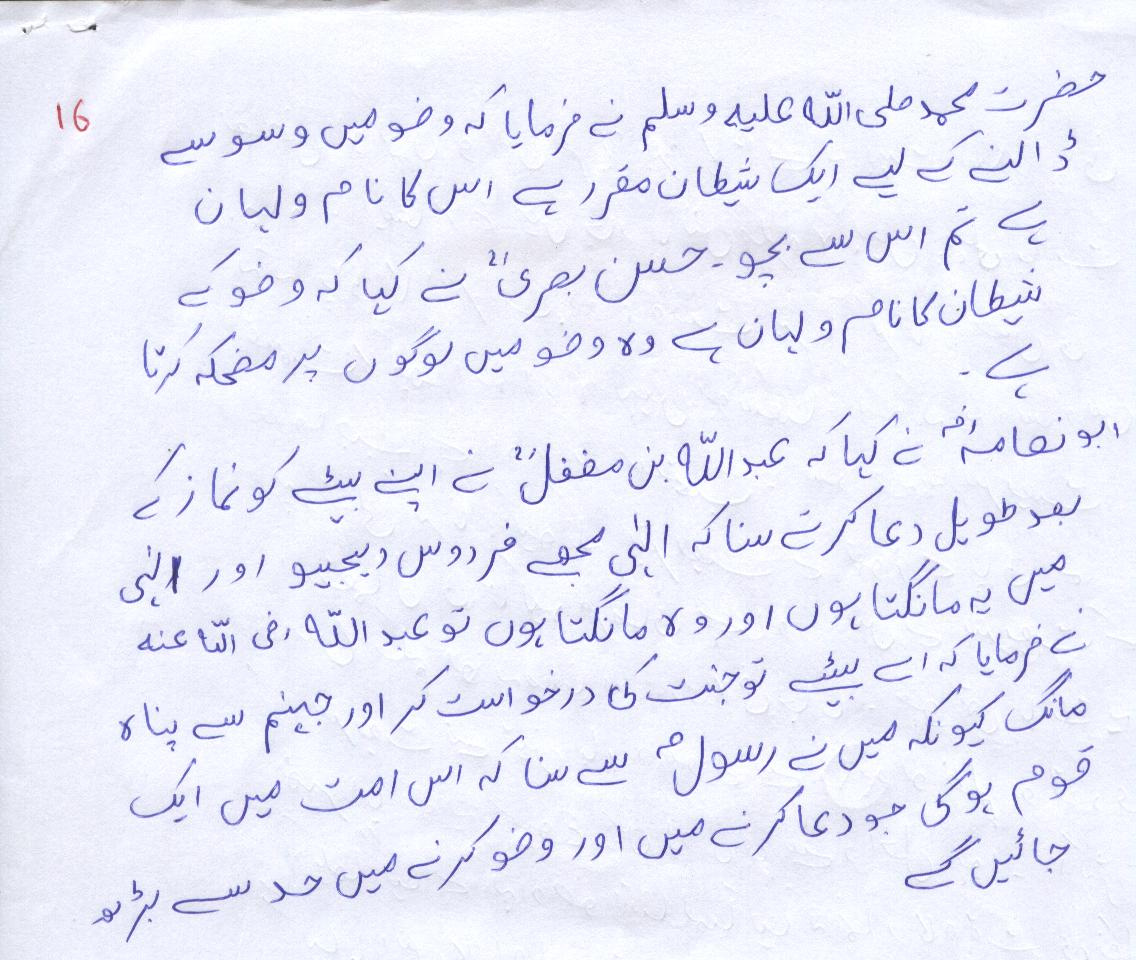 16
حضرت محمد صلی اللہ علیہ وسلم نے فرمایا کہ وضو میں وسوسے
ڈالنے کے لیے ایک شیطان مقرر ہے اس کا نام ولہان
ہے تم اس سے بچو۔ حسن بصریؒ نے کہا کہ وضو کے
شیطان کا نام ولہان ہے وہ وضو میں لوگوں پر مضحکہ کرتا
ہے۔
ابو نعامہؓ نے کہا کہ عبداللہ بن مغفلؓ نے اپنے بیٹے کو نماز کے
بعد طویل دعا کرتے سنا کہ الہٰی مجھے فردوس دیجیو اور الہٰی
میں یہ مانگتا ہوں اور وہ مانگتا ہوں تو عبد اللہ رضی اللہ عنہ
نے فرمایا کہ اے بیٹے تو جنت کی درخواست کر اور جہنم سے پناہ
مانگ کیونکہ میں نے رسولؐ سے سنا کہ اس امت میں ایک
قوم ہوگی جو دعا کرنے میں اور وضو کرنے میں حد سے بڑھ
جائیں گے